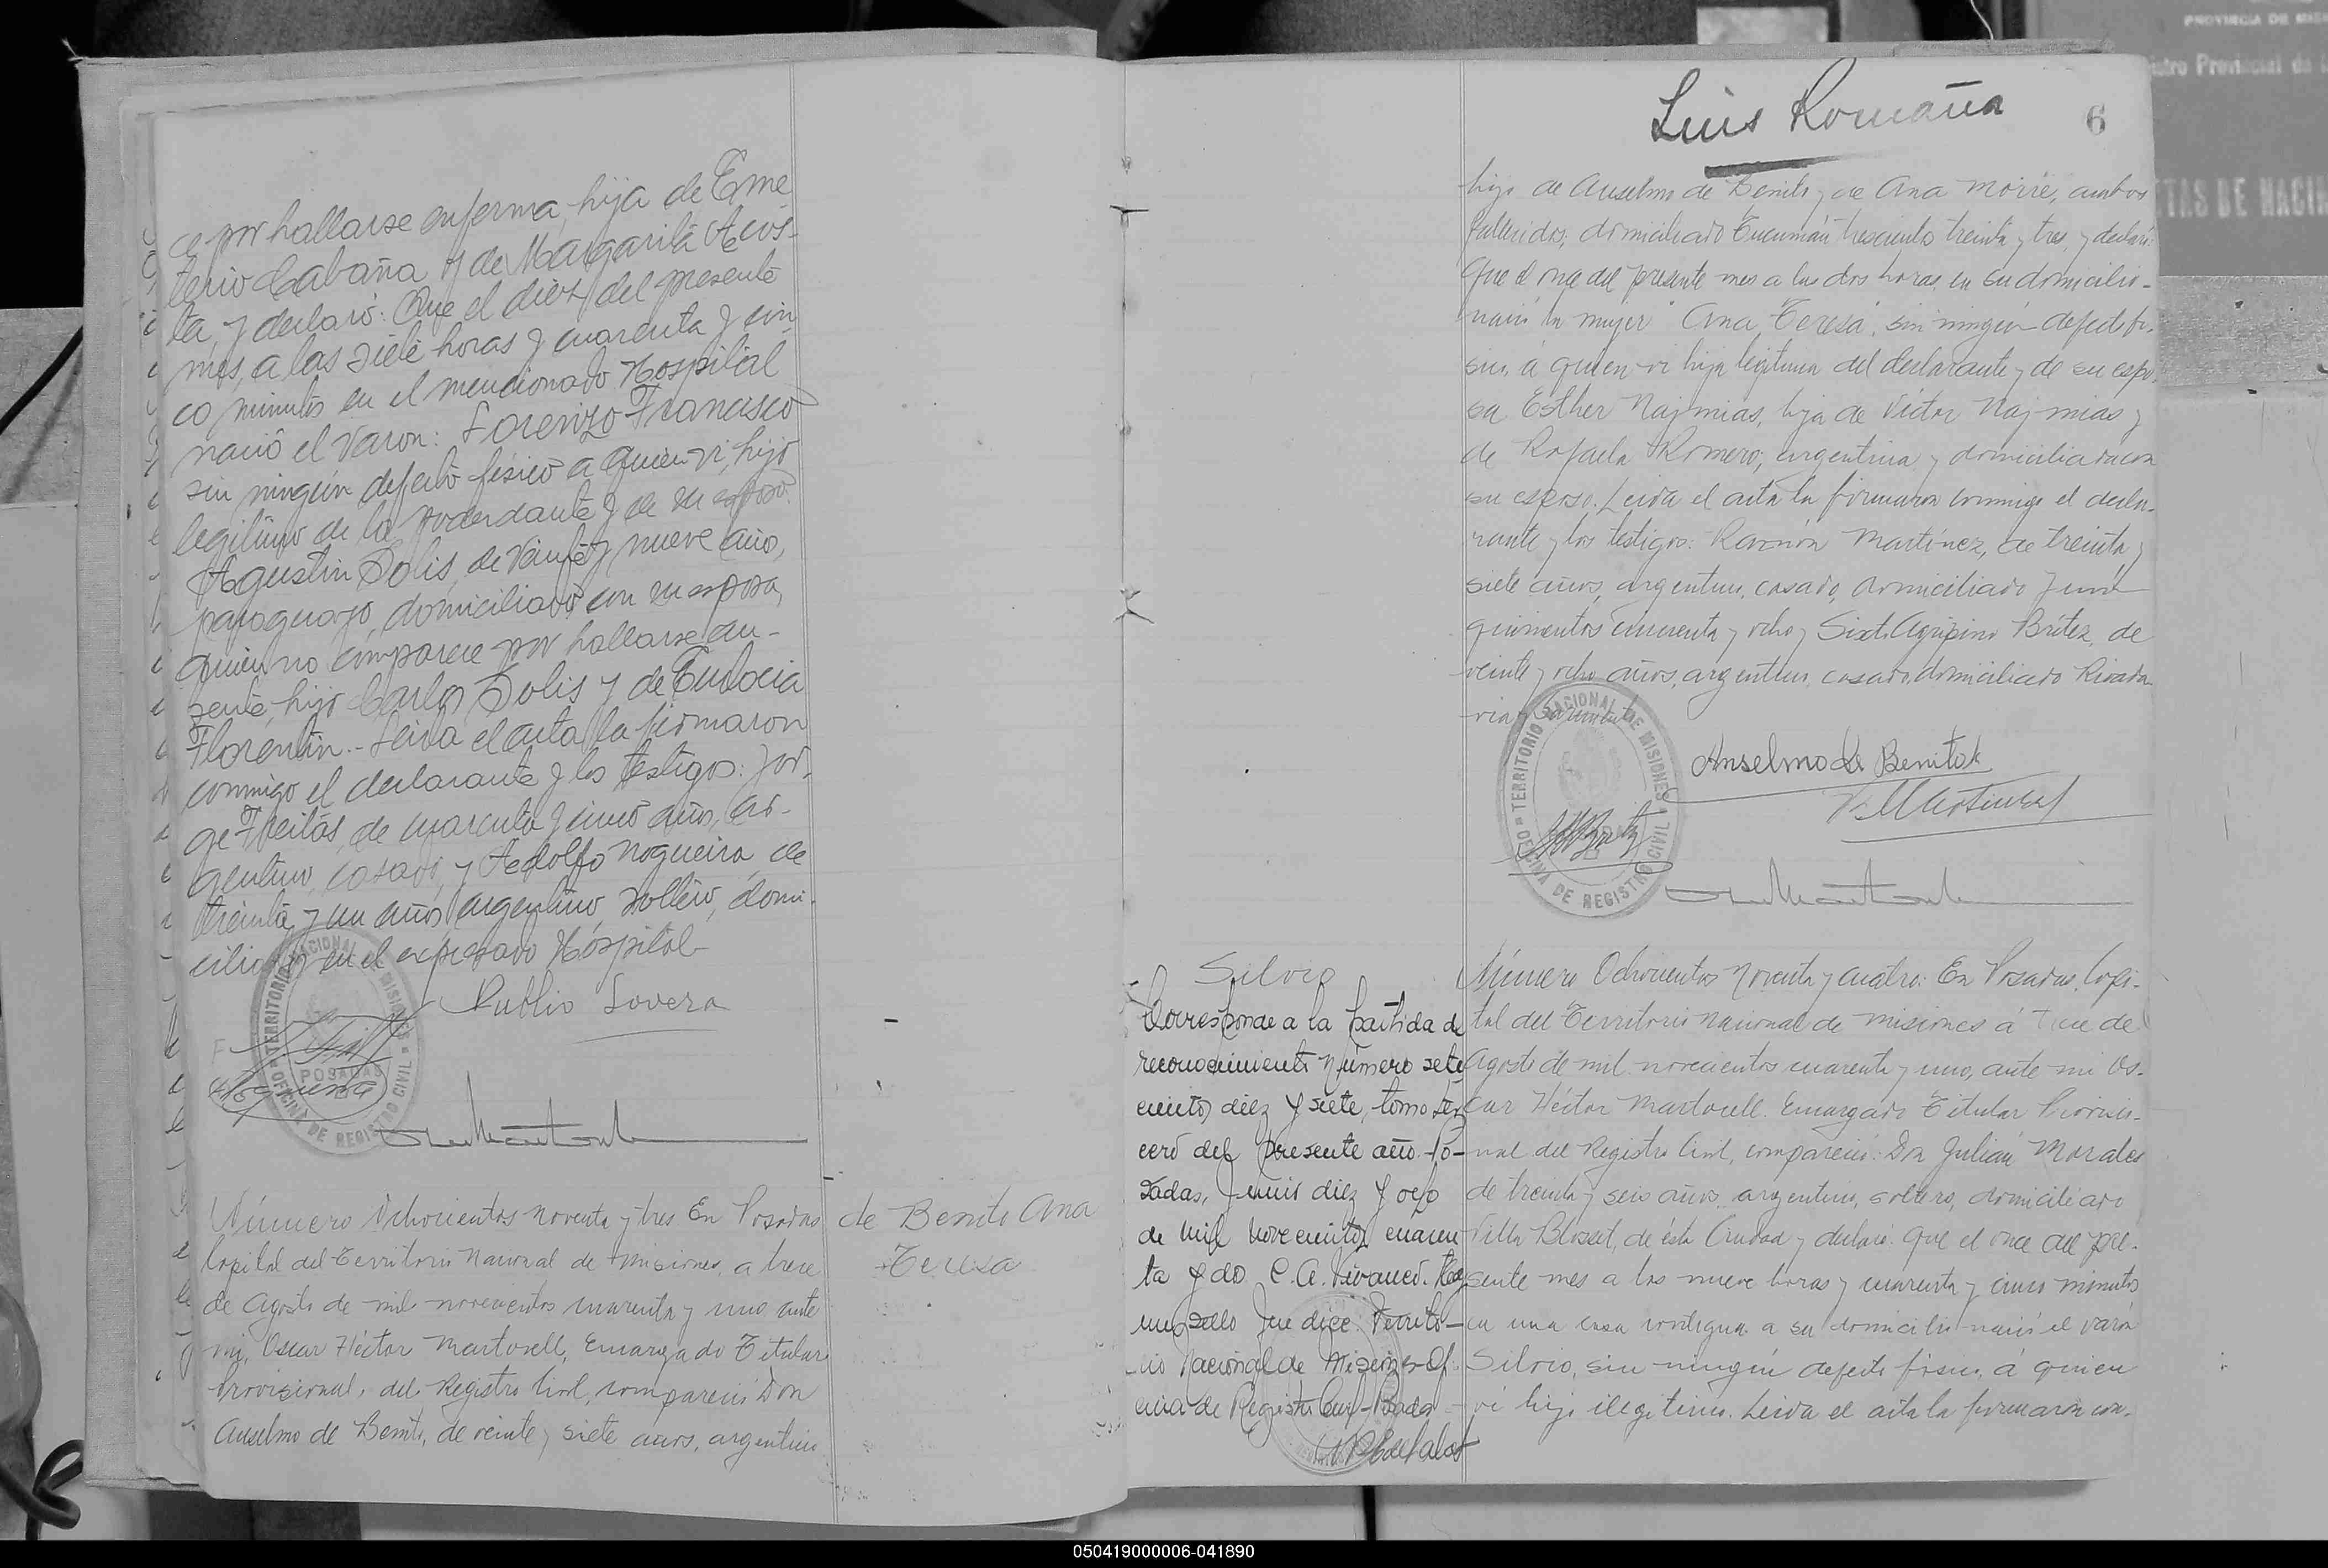 ce por hallarse enferma, hija de Eme
terio Cabaña y de Margarita Acos-
ta, y declaró: Que el diez del presente
mes, a las siete horas y cuarenta y cin
co minutos en el mencionado Hospital
nació el varon: Lorenzo Francisco
sin ningún defecto físico a quien vi, hijo
legítimo de la poderdante y de su esposo
Agustin Solis, de veinte y nueve años,
paraguayo, domiciliado con su esposa,
quien no comparece por hallarse au-
sente, hijo Carlos Solis y de Eudocia
Florentin.- Leida el acta la firmaron
conmigo el declarante y los testigos: Jor-
ge Freitas, de cuarenta y cinco años, ar-
gentino, casado, y Adolfo Nogueira, de
treinta y un años, argentino, soltero, domi-
ciliados en el expresado Hospital
Publio Lovera
TERRITORIO NACIONAL DE MISIONES
POSADAS
OFICINA DE REGISTRO CIVIL
Número Ochocientos noventa y tres En Posadas
Capital del Territorio Nacional de Misiones, a trece
de Agosto de mil novecientos cuarenta y uno, ante
mi, Oscar Héctor Martorell, Encargado Titular
Provisional, del Registro Civil, compareció Don
Anselmo de Benito, de veinte y siete años, argentino
de Benito Ana
Teresa
Luis Romaña
6
hijo de Anselmo de Benito y de Ana Morré, ambos
fallecidos, domiciliado Tucumán trescientos treinta y tres, y declaró:
Que el once del presente mes a las dos horas, en su domicilio-
nació la mujer "Ana Teresa", sin ningún defecto fí-
sico, á quien vi hija legítima del declarante y de su espo-
sa Esther Najmias, hija de Victor Najmias y
de Rafaela Romero, argentina y domiciliada con
su esposo. Leida el acta la firmaron conmigo el decla-
rante y los testigos: Ramón Martínez, de treinta y
siete años, argentino, casado, domiciliado Junin
quinientos cincuenta y ocho y Sixto Agripino Britez, de
veinte y ocho años, argentino, casado, domiciliado Rivada
via y Sarmiento
TERRITORIO NACIONAL DE MISIONES
OFICINA DE REGISTRO CIVIL
Anselmo de Benito
R Martinez
Silvio
Corresponde a la partida de
reconocimiento número sete
cientos diez y siete, tomo ter
cero del presente año. Po-
sadas, Junio diez y ocho
de mil novecientos cuaren
ta y dos. C. A. Vivanco. Hay
un sello que dice: Territo-
rio Nacional de Misiones-Of.
cina de Registro Civil-Posadas
Número Ochocientos Noventa y cuatro: En Posadas, Capi-
tal del Territorio Nacional de Misiones á trece de
Agosto de mil novecientos cuarenta y uno, ante mi Os-
car Héctor Martorell. Encargado Titular Provisio-
nal del Registro Civil, compareció: Don Julián Morales
de treinta y seis años, argentino, soltero, domiciliado
Villa Blosset, de ésta Ciudad y declaró: Que el once del pre-
sente mes a las nueve horas y cuarenta y cinco minutos
en una casa contigua a su domicilio nació el varón
Silvio, sin ningún defecto físico, á quien
vi hijo ilegítimo. Leida el acta la firmaron con-
050419000006-041890